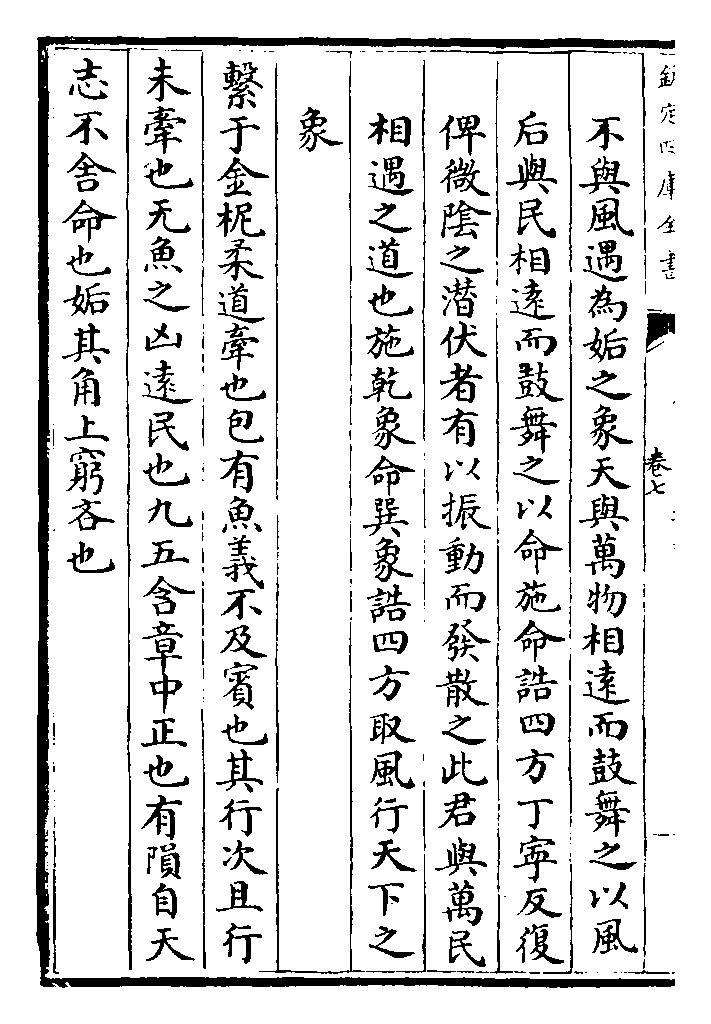 欽定四庫全書
卷七
不與風遇為姤之象天與萬物相遠而鼓舞之以風
后與民相遠而鼓舞之以命施命誥四方丁寧反復
俾微陰之潛伏者有以振動而發散之此君與萬民
相遇之道也施乾象命巽象誥四方取風行天下之
象
繫于金柅柔道牽也包有魚義不及賓也其行次且行
未牽也无魚之凶遠民也九五含章中正也有隕自天
志不舍命也姤其角上窮吝也